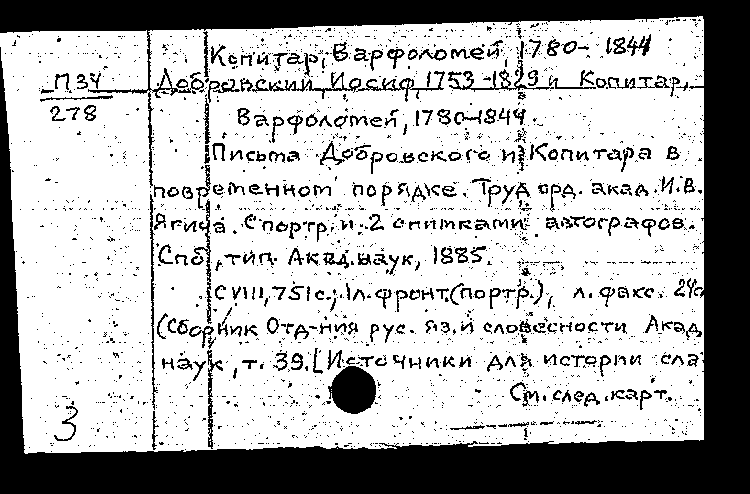 Копитар, Варфоломей, 1780-1844
П34
278
Добровский, Иосиф, 1753-1829 и Копитар,
Варфоломей, 1780-1844.
Письма Добровского и Копитара в
повременном порядке. Труд орд. акад. И.В.
Ягича. С портр. и 2 снимками автографов.
Спб, тип. Акад. наук, 1885.
CVIII, 751 с.; 1л. фронт.(портр.), л. факс. 24с
(Сборник Отд-ния рус. яз. и словесности Акад.
наук, т. 39. [Источники для истории сла
См. след. карт.
3